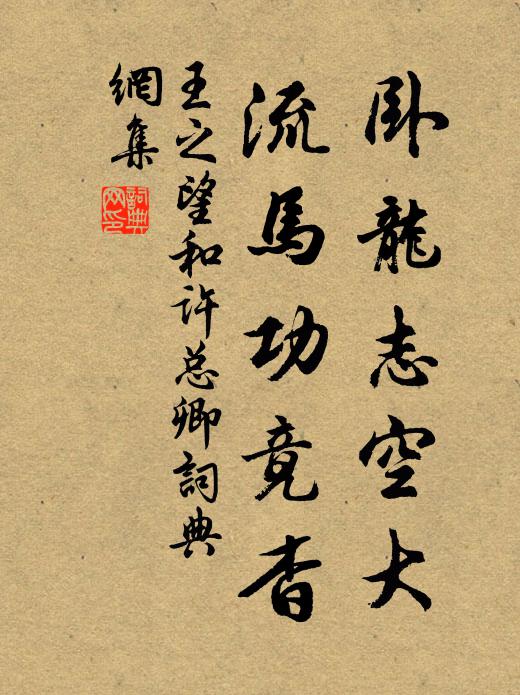 卧龍志空大
流馬功竟杳
王之望和许总卿詞典
網集
詞典
网印